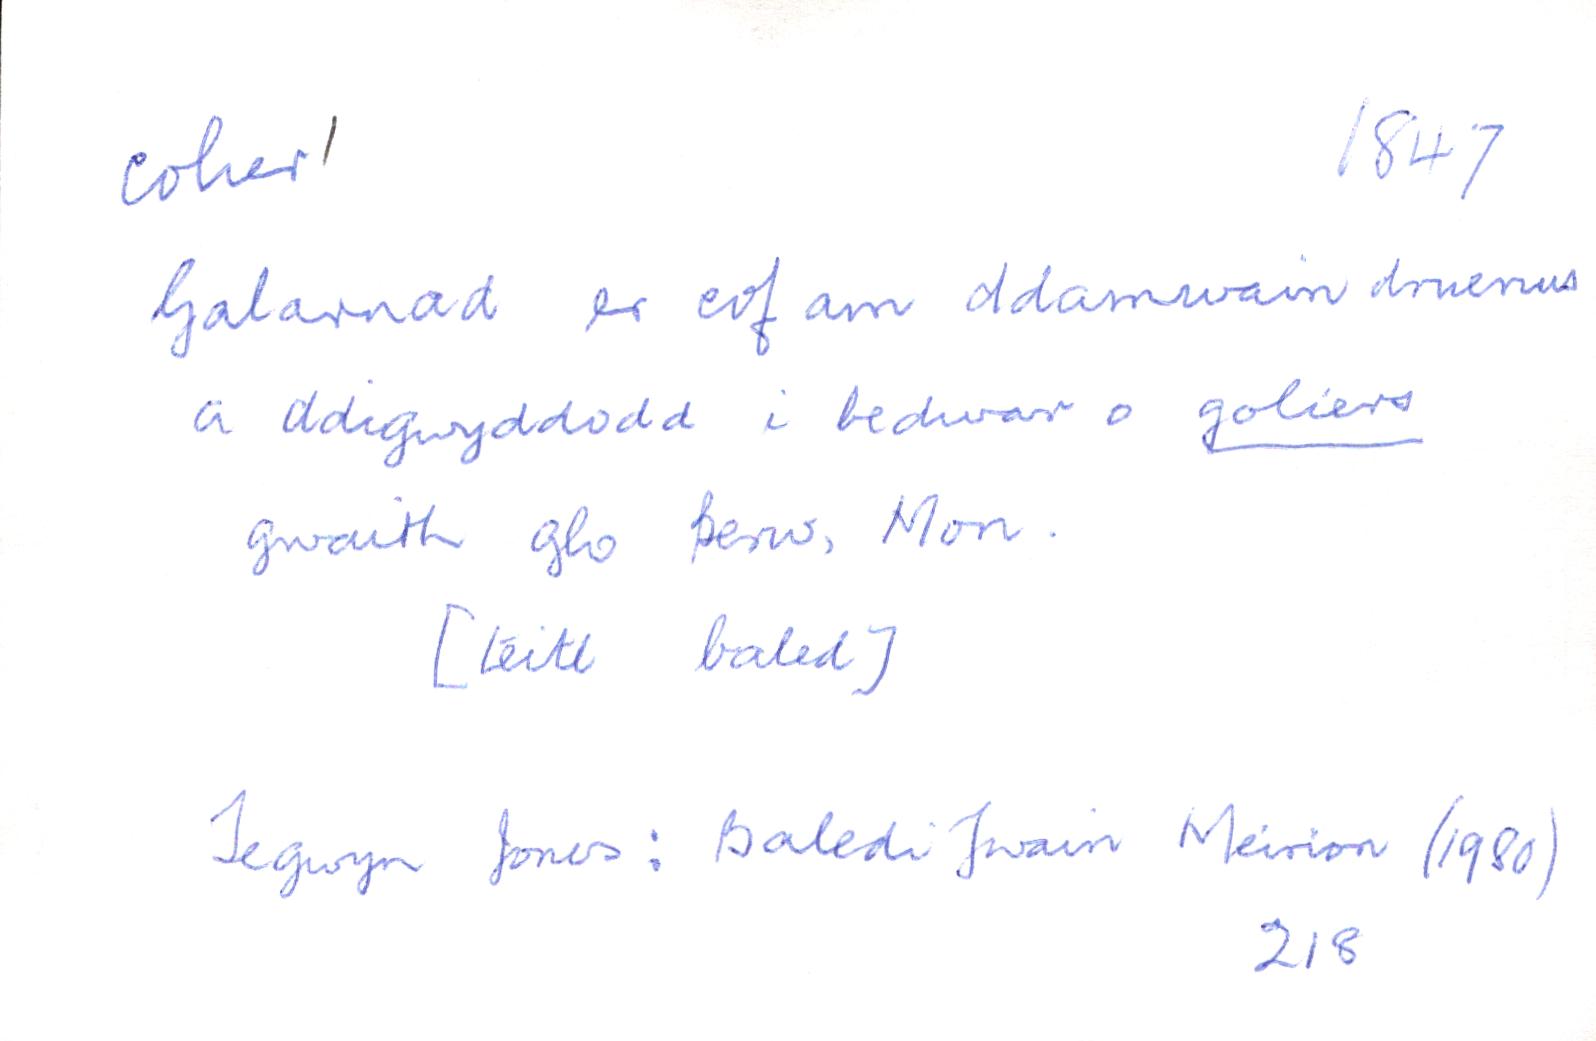 colier¹ 1847
Galarnad er cof am ddamwain druenus
a ddigwyddodd i bedwar o goliers
gwaith glo Berw, Mon.
[teitl baled]
Tegwyn Jones: Baledi Ywain Meirion (1980)
218